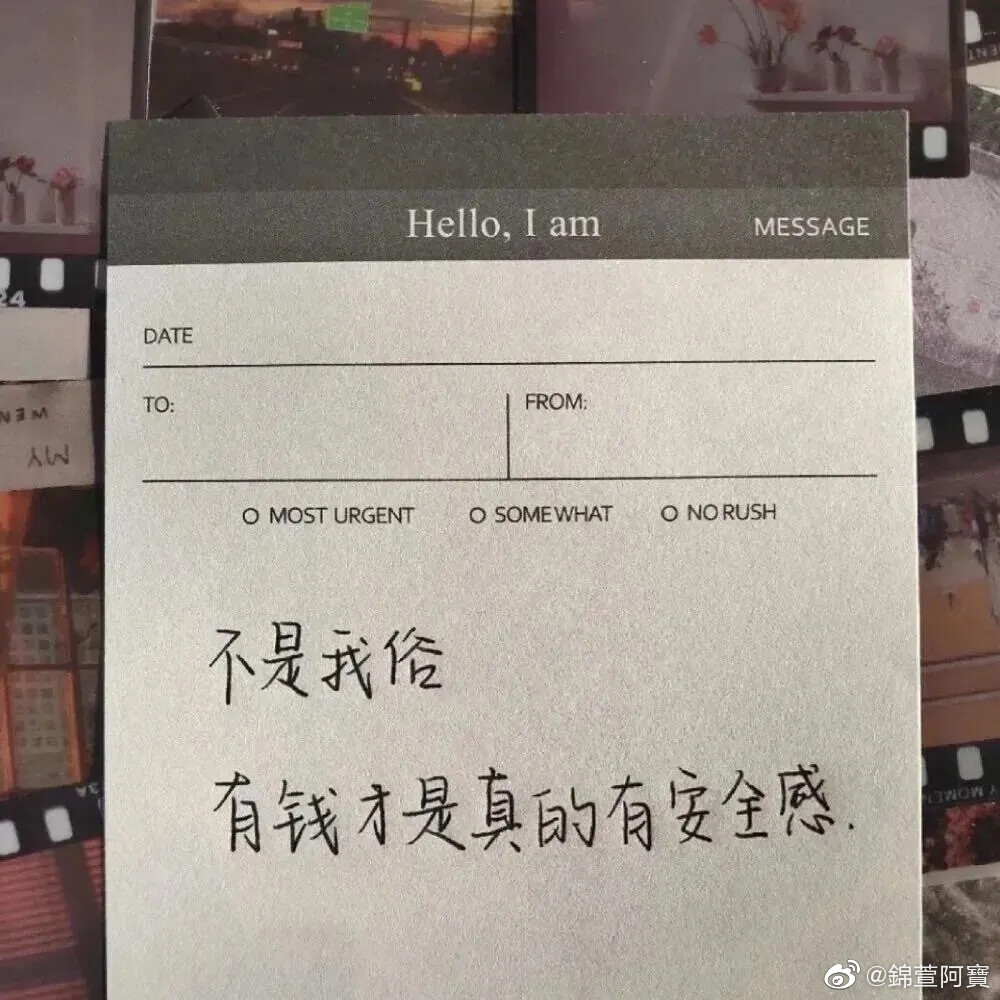 Hello, I am
MESSAGE
DATE
TO:
FROM:
MOST URGENT
SOMEWHAT
NO RUSH
不是我俗
有钱才是真的有安全感.
24
MY
@錦萱阿寶